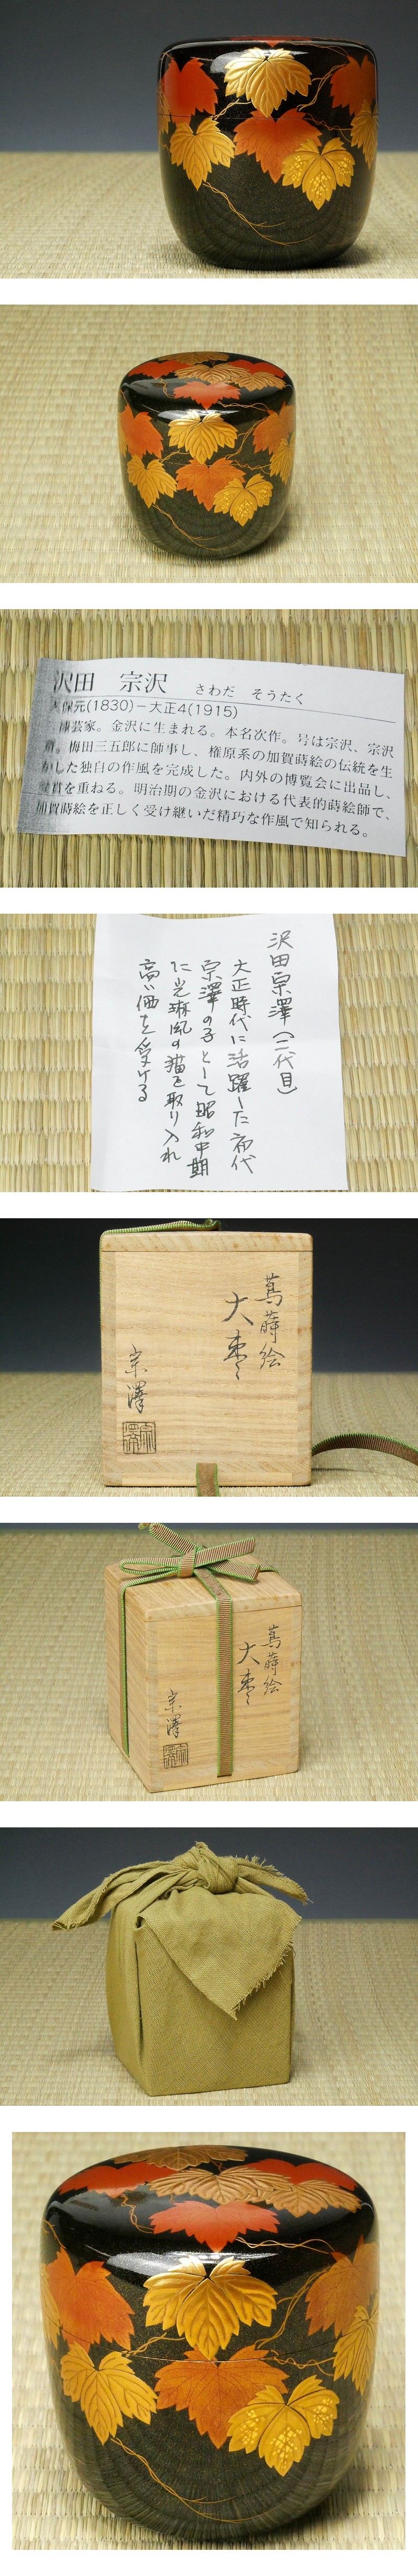 沢田 宗沢 さわだ そうたく
保元(1830)−大正4(1915)
漆芸家。金沢に生まれる。本名次作。号は宗沢、宗沢
斎。梅田三五郎に師事し、椎原系の加賀蒔絵の伝統を生
かした独自の作風を完成した。内外の博覧会に出品し、
受賞を重ねる。明治期の金沢における代表的蒔絵師で、
加賀蒔絵を正しく受け継いだ精巧な作風で知られる。
沢田宗澤(二代目)
大正時代に活躍した初代
宗澤の子として昭和中期
に光琳風の猫を取り入れ
高い価を受ける
蔦蒔絵
大棗
宗澤
蔦蒔絵
大棗
宗澤